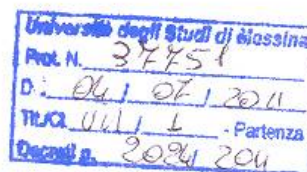 Università degli Studi di Messina
Prot. N. 37751
D: 04 / 07 / 2011
Tit./Cl. VII / 1 - Partenza
Decreti n. 2024/ 2011